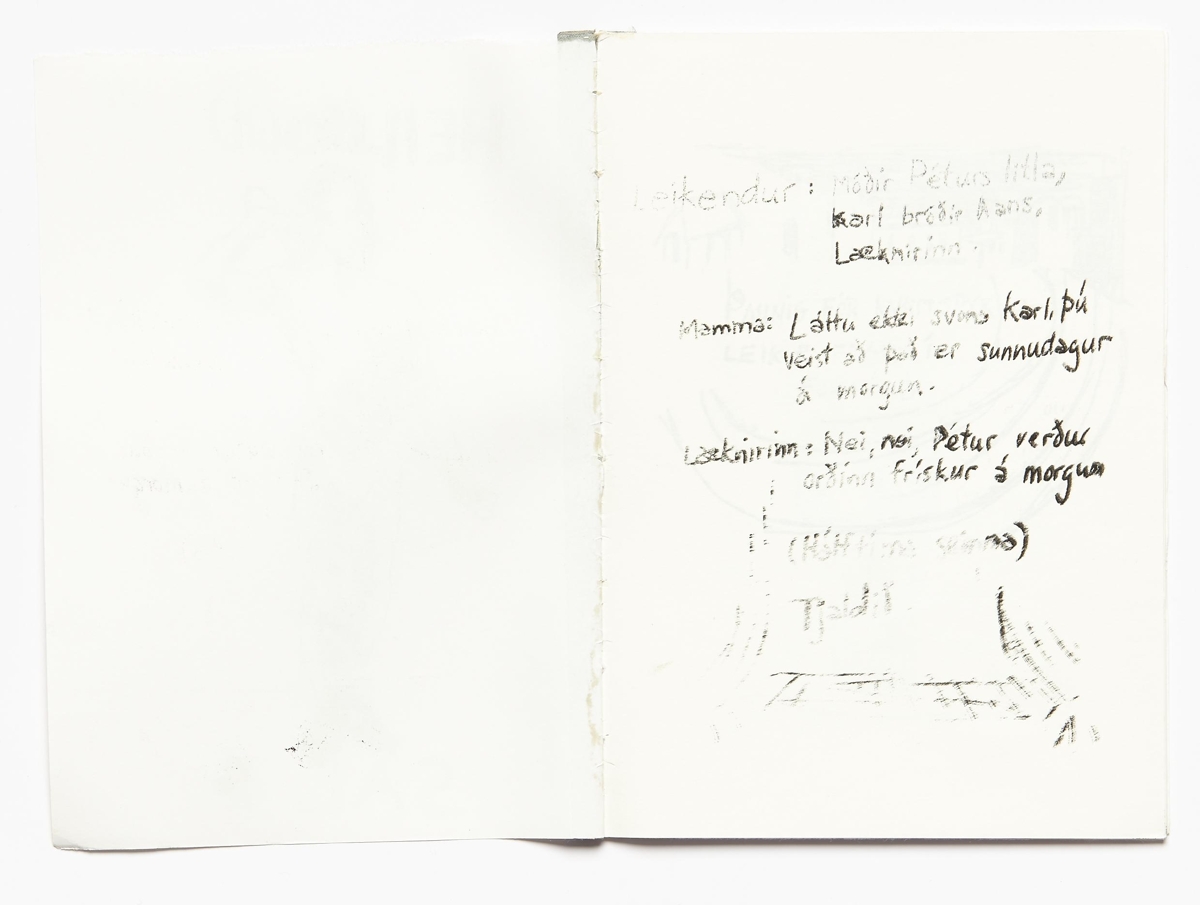 Leikendur: Móðir Péturs litla,
Karl bróðir hans,
Læknirinn.
Mamma: Láttu ekki svona Karl, þú
veist að það er sunnudagur
á morgun.
Læknirinn: Nei, nei, Pétur verður
orðinn frískur á morgun
Tjaldið.